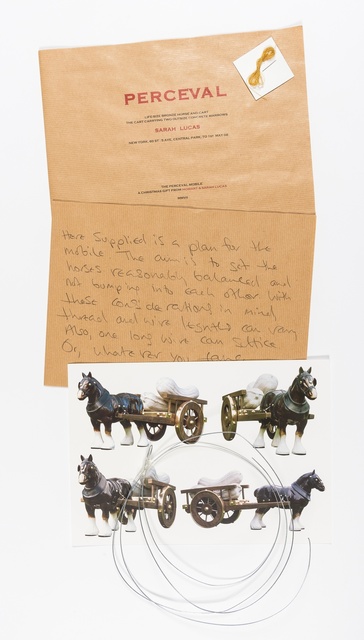 PERCEVAL
LIFE-SIZE BRONZE HORSE AND CART
THE CART CARRYING TWO OUTSIZE CONCRETE MARROWS
SARAH LUCAS
THE PERCEVAL MOBILE
A CHRISTMAS GIFT FROM
Here supplied is a plan for the
mobile. The aim is to get the
horses reasonably balanced and
not bumping into each other. With
these considerations in mind
thread and wire lengths can vary
Also, one long wire can suffice
Or, whatever you fancy